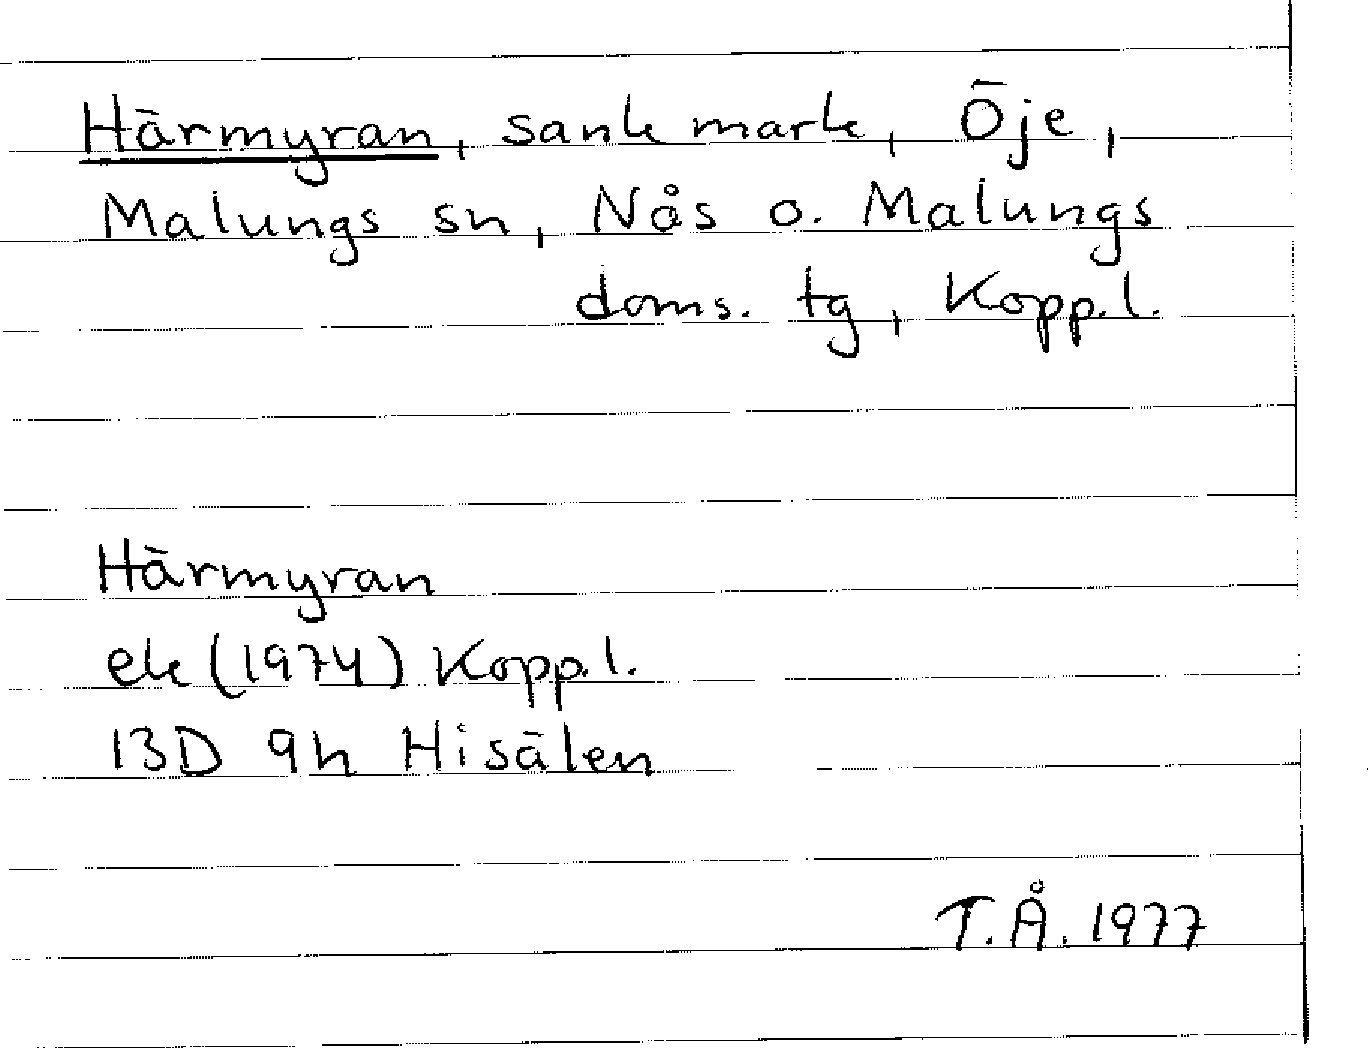 Härmyran, sank mark, Öje,
Malungs sn, Nås o. Malungs
doms. tg, Kopp.l.
Härmyran
ek (1974) Kopp.l.
13D 9h Hisälen
T.Å. 1977